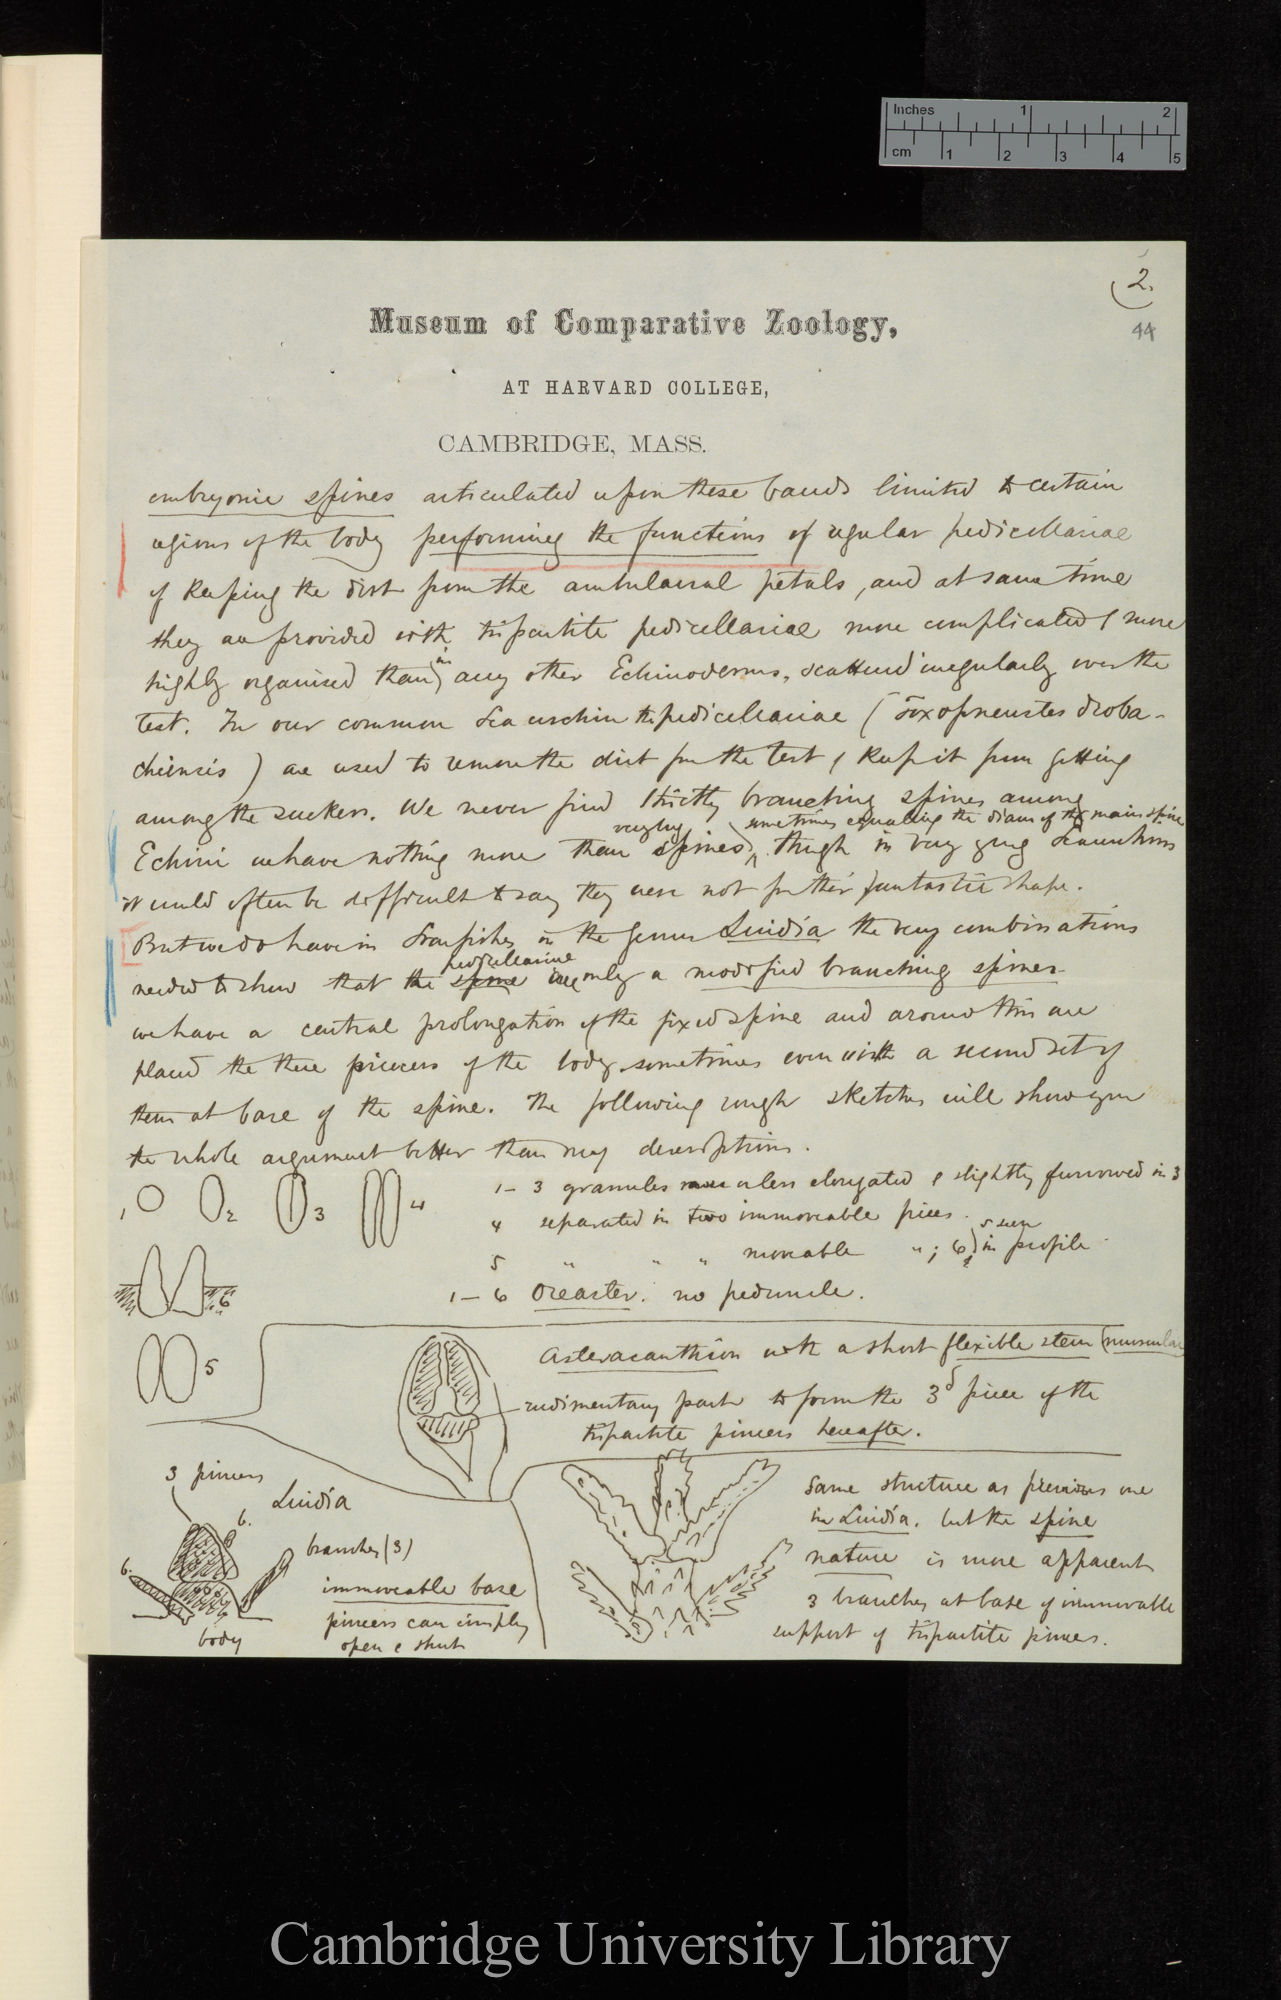 Inches 1 2
cm 1 2 3 4 5
2.
44
Museum of Comparative Zoology,
AT HARVARD COLLEGE,
CAMBRIDGE, MASS.
embryonic spines articulated upon these bands limited to certain
regions of the body performing the functions of regular pedicellariae
of keeping the dirt from the ambulacral petals, and at same time
they are provided with tripartite pedicellariae more complicated & more
highly organised than in any other Echinoderms, scattered irregularly over the
test. In our common Sea urchin the pedicellariae (Toxopneustes droba-
chiensis) are used to remove the dirt from the test & keep it from getting
among the suckers. We never find strictly branching spines among
sometimes equalling the diam of the main spine
Echini we have nothing more than spines, though in very young Seaurchins
it would often be difficult to say they were not from their fantastic shape.
But we do have in Starfishes in the genus Luidia the very combinations
pedicellariae
needed to show that the spine are only a modified branching spines
we have a central prolongation of the fixed spine and around this are
placed the three pincers of the body sometimes even with a second set of
them at base of the spine. The following rough sketches will show you
the whole argument better than my descriptions.
1 2 3 4
1–3 granules more or less elongated & slightly furrowed in 3
4 separated in two immoveable pieces.
5 " " " moveable " ; 6, 5 seen in profile
6
1–6 Oreaster. no peduncle.
5
Asteracanthion with a short flexible stem (muscular
rudimentary part to form the 3d piece of the
tripartite pincers hereafter.
3 pincers
Luidia
b.
b.
branches (3)
immoveable base
pincers can simply
open & shut
body
Same structure as previous one
in Luidia. but the spine
nature is more apparent
3 branches at base of immovable
support of tripartite pincers.
Cambridge University Library